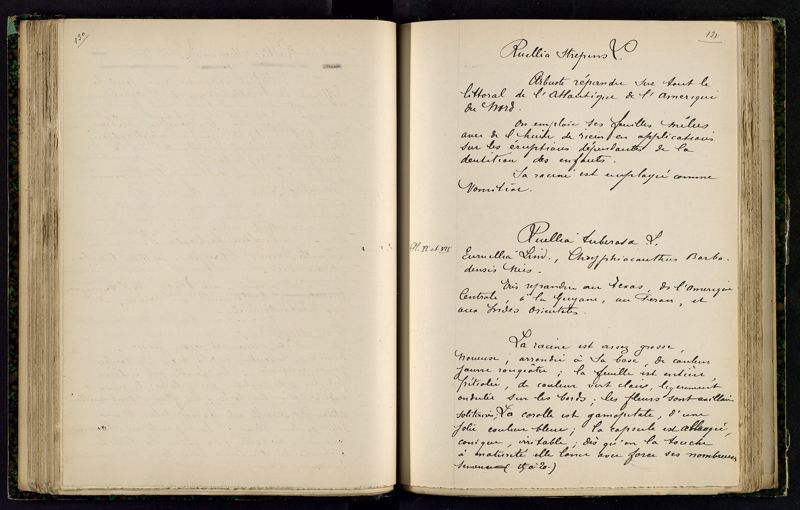 130
131
Ruellia Strepens L.
Arbuste répandu sur tout le
littoral de l'Atlantique de l'Amerique
du Nord.
On emploie ses feuilles mêlées
avec de l'huile de ricin en applications
sur les éruptions dépendantes de la
dentition des enfants.
Sa racine est employée comme
Vomitive.
Pl. VI et VII
Ruellia tuberosa L.
Lind., Chryphiacanthus Barba-
densis Nees.
Très répandu au Texas, de l'Amerique
Centrale, à la Guyane, au Perou, et
aux Indes Orientales.
La racine est assez grosse,
noueuse, arrondie à sa base, de couleur
jaune rougeatre; la feuille est entière
pétiolée, de couleur vert clair, legerement
ondulée sur les bords; les fleurs sont axillaires
solitaires. La corolle est gamopetale, d'une
jolie couleur bleue; la capsule est allongée,
conique, irritable; dès qu'on la touche
à maturité elle lance avec force ses nombreuses
semences (15 à 20.)